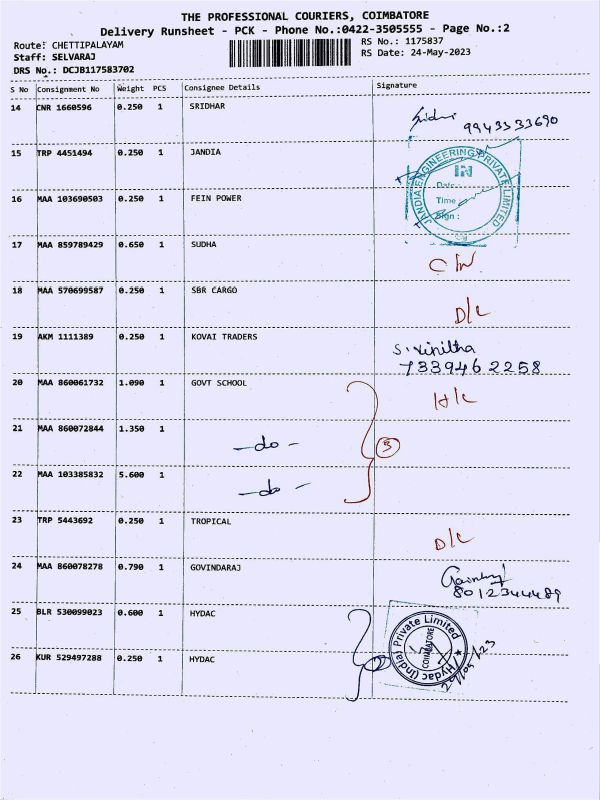 THE PROFESSIONAL COURIERS, COIMBATORE
Delivery Runsheet - PCK - Phone No.:0422-3505555 - Page No.:2
Route: CHETTIPALAYAM
RS No.: 1175837
Staff: SELVARAJ
RS Date: 24-May-2023
DRS No.: DCJB117583702
S No Consignment No Weight PCS Consignee Details Signature
14 CNR 1660596 0.250 1 SRIDHAR
9943533690
15 TRP 4451494 0.250 1 JANDIA
JANDIA ENGINEERING PRIVATE LIMITED
Date:
Time
Sign:
16 MAA 103690503 0.250 1 FEIN POWER
17 MAA 859789429 0.650 1 SUDHA
18 MAA 570699587 0.250 1 SBR CARGO
D/L
19 AKM 1111389 0.250 1 KOVAI TRADERS
7339462258
20 MAA 860061732 1.090 1 GOVT SCHOOL
H/L
21 MAA 860072844 1.350 1
-do-
3
22 MAA 103385832 5.600 1
-do-
23 TRP 5443692 0.250 1 TROPICAL
D/L
24 MAA 860078278 0.790 1 GOVINDARAJ
8012344489
25 BLR 530099023 0.600 1 HYDAC
Hydac (India) Private Limited
COIMBATORE
26 KUR 529497288 0.250 1 HYDAC